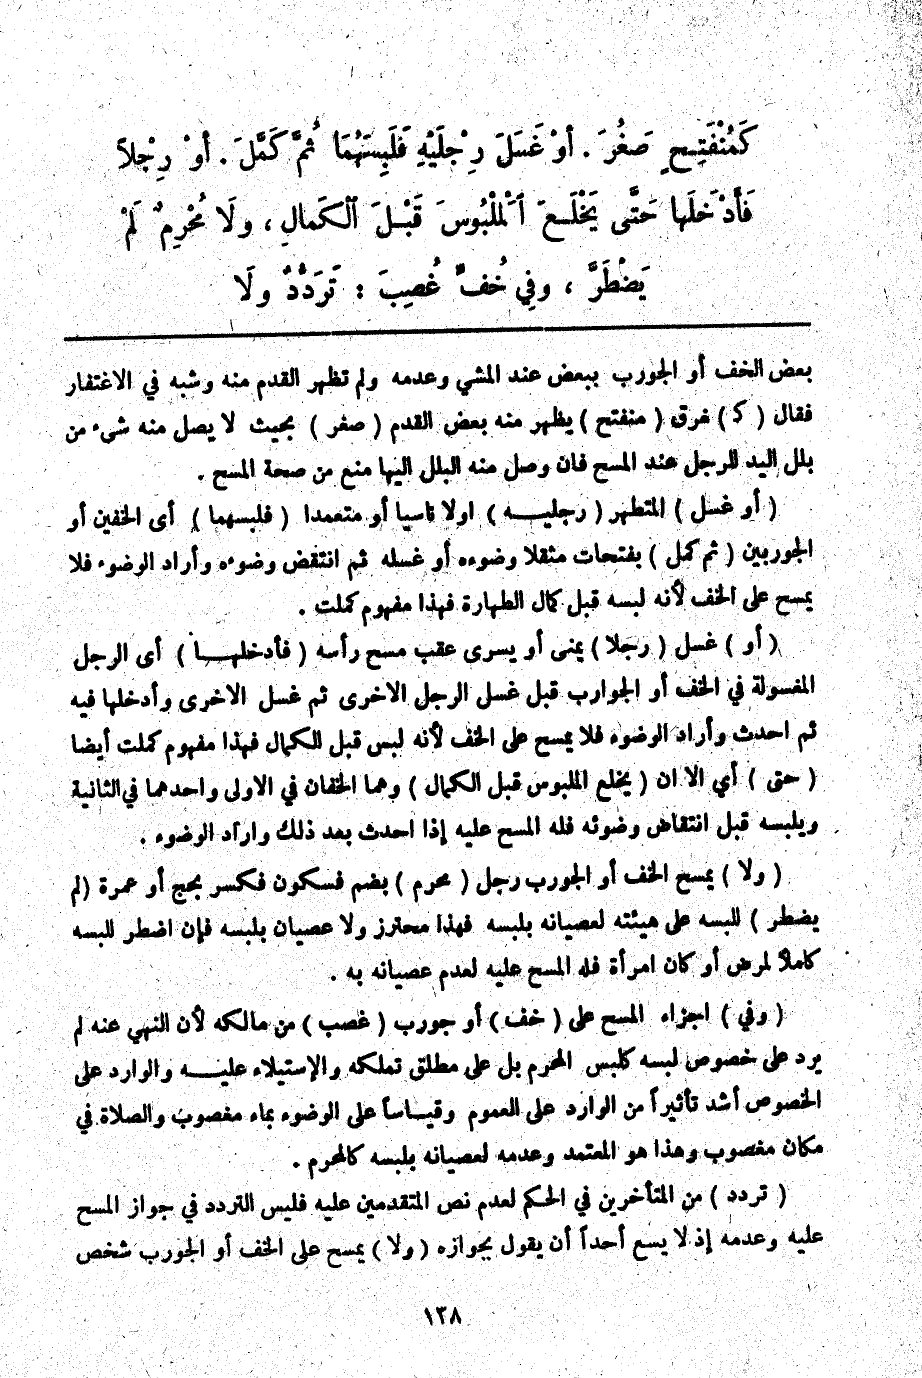 كَمُنْفَتِحٍ صَغُرَ . أوْ غَسَلَ رِجْلَيْهِ فَلَبِسَهُمَا ثُمَّ كَمَّلَ . أوْ رِجْلاً
فَأَدْخَلَها حَتَّى يَخْلَعَ ٱلْمَلْبُوسَ قَبْلَ ٱلْكَمالِ ، ولَا مُحْرِمٌ لَمْ
يَضْطَرَّ ، وفِي خُفٍّ غُصِبَ : تَرَدُّدٌ ولَا
بعض الخف أو الجورب ببعض عند المشي وعدمه ولم تظهر القدم منه وشبه في الاغتفار
فقال ( كـ ) خرق ( منفتح ) يظهر منه بعض القدم ( صغر ) بحيث لا يصل منه شىء من
بلل اليد للرجل عند المسح فان وصل منه البلل اليها منع من صحة المسح .
( أو غسل ) المتطهر ( رجليـــه ) اولا ناسيا أو متعمدا ( فلبسهما ) أى الخفين أو
الجوربين ( ثم كمل ) بفتحات مثقلا وضوءه أو غسله ثم انتقض وضوءه وأراد الوضوء فلا
يمسح على الخف لأنه لبسه قبل كمال الطهارة فهذا مفهوم كملت .
( أو ) غسل ( رجلا ) يمنى أو يسرى عقب مسح رأسه ( فأدخلهـــا ) أى الرجل
المغسولة في الخف أو الجوارب قبل غسل الرجل الاخرى ثم غسل الاخرى وأدخلها فيه
ثم احدث وأراد الوضوء فلا يمسح على الخف لأنه لبس قبل الكمال فهذا مفهوم كملت أيضا
( حتى ) أي الا ان ( يخلع الملبوس قبل الكمال ) وهما الخفان في الاولى واحدهما في الثانية
ويلبسه قبل انتقاض وضوئه فله المسح عليه إذا احدث بعد ذلك واراد الوضوء .
( ولا ) يمسح الخف أو الجورب رجل ( محرم ) بضم فسكون فكسر بحج أو عمرة (لم
يضطر ) للبسه على هيئته لعصيانه بلبسه فهذا محترز ولا عصيان بلبسه فإن اضطر للبسه
كاملاً لمرض أو كان امرأة فله المسح عليه لعدم عصيانه به .
( وفي ) اجزاء المسح على ( خف ) أو جورب ( غصب ) من مالكه لأن النهي عنه لم
يرد على خصوص لبسه كلبس المحرم بل على مطلق تملكه والإستيلاء عليـــه والوارد على
الخصوص أشد تأثيراً من الوارد على العموم وقيـاساً على الوضوء بماء مغصوب والصلاة في
مكان مغصوب وهذا هو المعتمد وعدمه لعصيانه بلبسه كالمحرم .
( تردد ) من المتأخرين في الحكم لعدم نص المتقدمين عليه فليس التردد في جواز المسح
عليه وعدمه إذ لا يسع أحداً أن يقول بجوازه ( ولا ) يمسح على الخف أو الجورب شخص
١٣٨